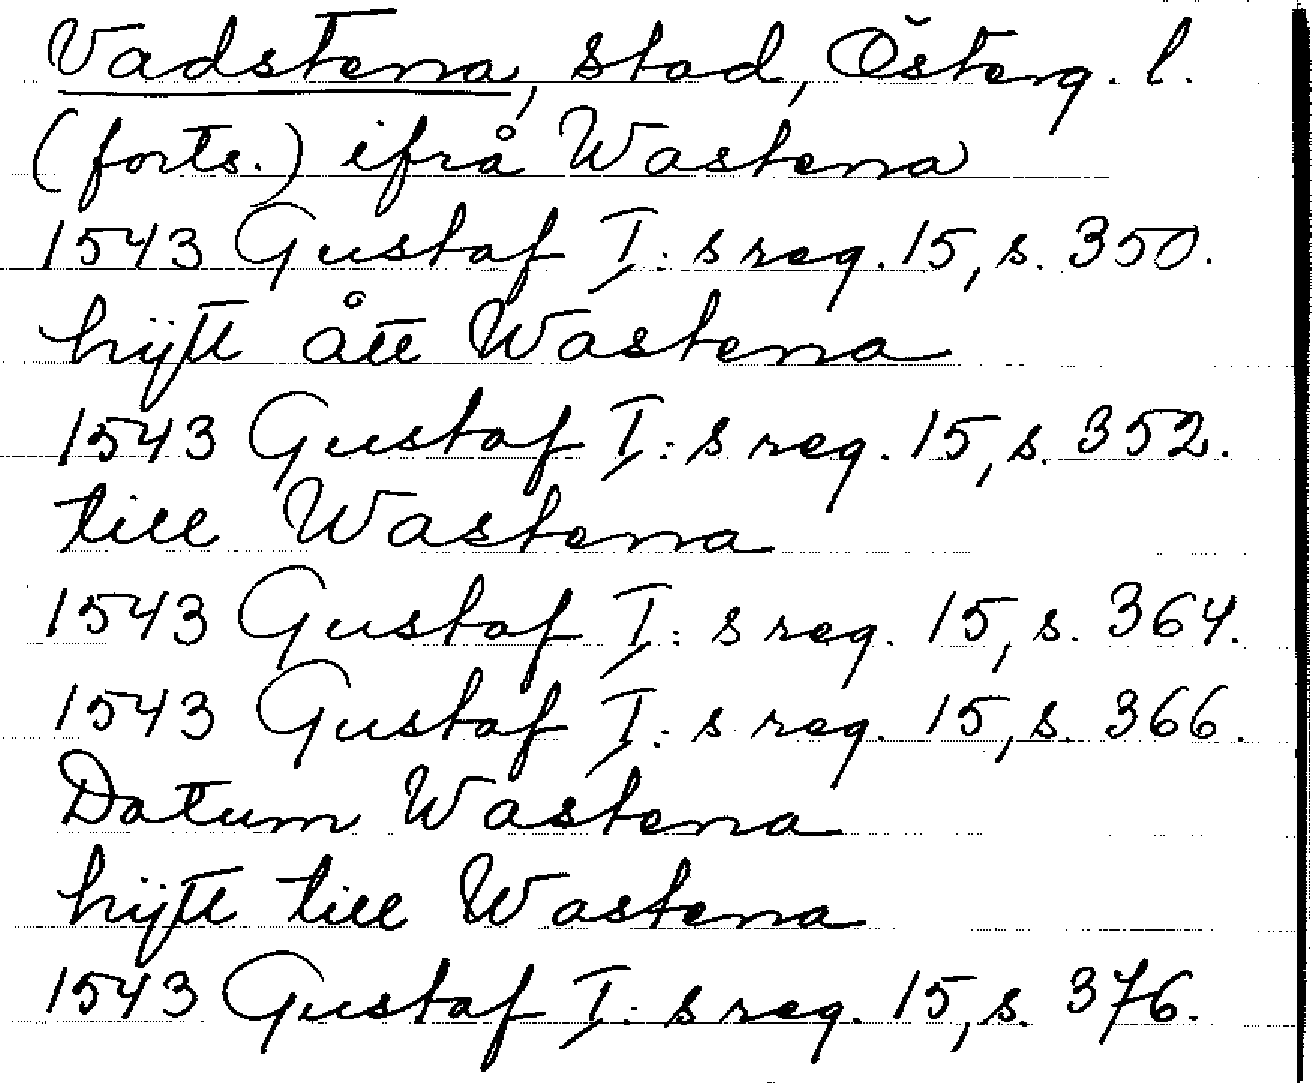 Vadstena, stad, Österg. l.
(forts.) ifrå Wastena
1543 Gustaf I:s reg. 15, s. 350.
hijtt ått Wastena
1543 Gustaf I:s reg. 15, s. 352.
till Wastena
1543 Gustaf I:s reg. 15, s. 364.
1543 Gustaf I:s reg. 15, s. 366.
Datum Wastena
hijtt till Wastena
1543 Gustaf I:s reg. 15, s. 376.